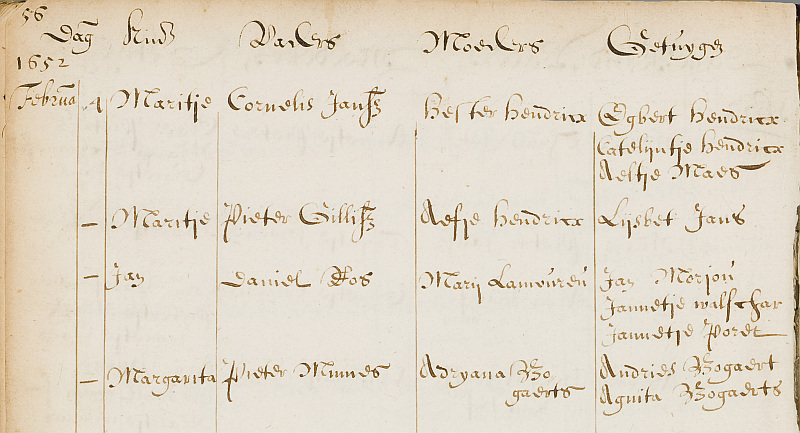 56
Dag Kind Vaders Moeders Getuyge
1652
Februa 4 Maritje Cornelis Jansz Hester Hendricx Egbert Hendricx
Catelijntje Hendricx
Aeltje Maes
– Maritje Pieter Gillisz Aefje Hendricx Lijsbet Jans
– Jan Daniel Ros Marij Lamoureu Jan Morjou
Jannetje walschar
Jannetje Poret
– Margarita Pieter Minnes Adryana Bo Andries Bogaert
gaerts Agnita Bogaerts